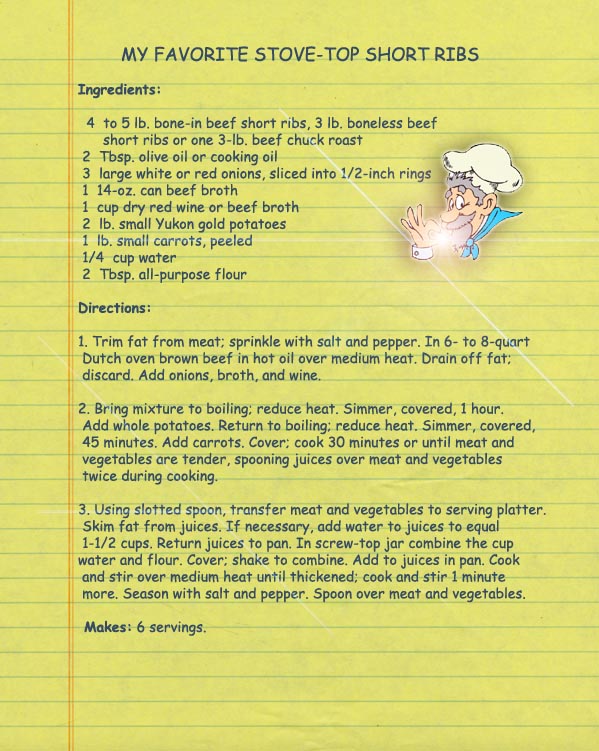 MY FAVORITE STOVE-TOP SHORT RIBS
Ingredients:
4 to 5 lb. bone-in beef short ribs, 3 lb. boneless beef
short ribs or one 3-lb. beef chuck roast
2 Tbsp. olive oil or cooking oil
3 large white or red onions, sliced into 1/2-inch rings
1 14-oz. can beef broth
1 cup dry red wine or beef broth
2 lb. small Yukon gold potatoes
1 lb. small carrots, peeled
1/4 cup water
2 Tbsp. all-purpose flour
Directions:
1. Trim fat from meat; sprinkle with salt and pepper. In 6- to 8-quart
Dutch oven brown beef in hot oil over medium heat. Drain off fat;
discard. Add onions, broth, and wine.
2. Bring mixture to boiling; reduce heat. Simmer, covered, 1 hour.
Add whole potatoes. Return to boiling; reduce heat. Simmer, covered,
45 minutes. Add carrots. Cover; cook 30 minutes or until meat and
vegetables are tender, spooning juices over meat and vegetables
twice during cooking.
3. Using slotted spoon, transfer meat and vegetables to serving platter.
Skim fat from juices. If necessary, add water to juices to equal
1-1/2 cups. Return juices to pan. In screw-top jar combine the cup
water and flour. Cover; shake to combine. Add to juices in pan. Cook
and stir over medium heat until thickened; cook and stir 1 minute
more. Season with salt and pepper. Spoon over meat and vegetables.
Makes: 6 servings.